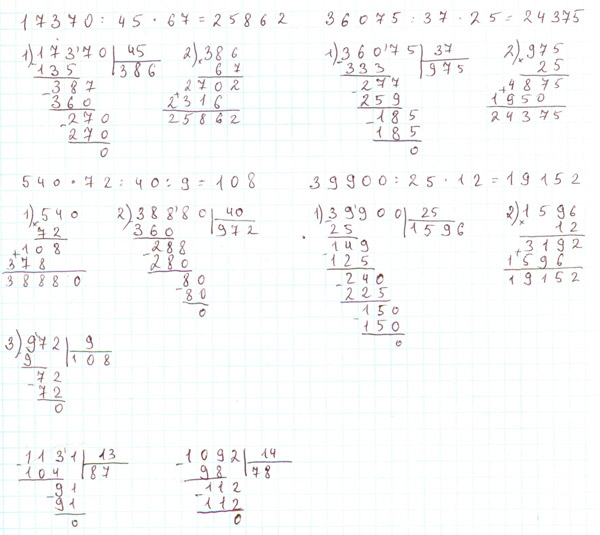 17370 : 45 · 67 = 25862
1) 17370 | 45
135 | 386
- 387
360
- 270
270
0
2) × 386
67
+ 2702
2316
25862
36075 : 37 · 25 = 24375
1) 36075 | 37
333 | 975
- 277
259
- 185
185
0
2) × 975
25
+ 4875
1950
24375
540 · 72 : 40 : 9 = 108
1) × 540
72
+ 108
378
38880
2) 38880 | 40
360 | 972
- 288
280
- 80
80
0
39900 : 25 · 12 = 19152
1) 39900 | 25
25 | 1596
- 149
125
- 240
225
- 150
150
0
2) × 1596
12
+ 3192
1596
19152
3) 972 | 9
9 | 108
- 72
72
0
- 1131 | 13
104 | 87
- 91
91
0
- 1092 | 14
98 | 78
- 112
112
0